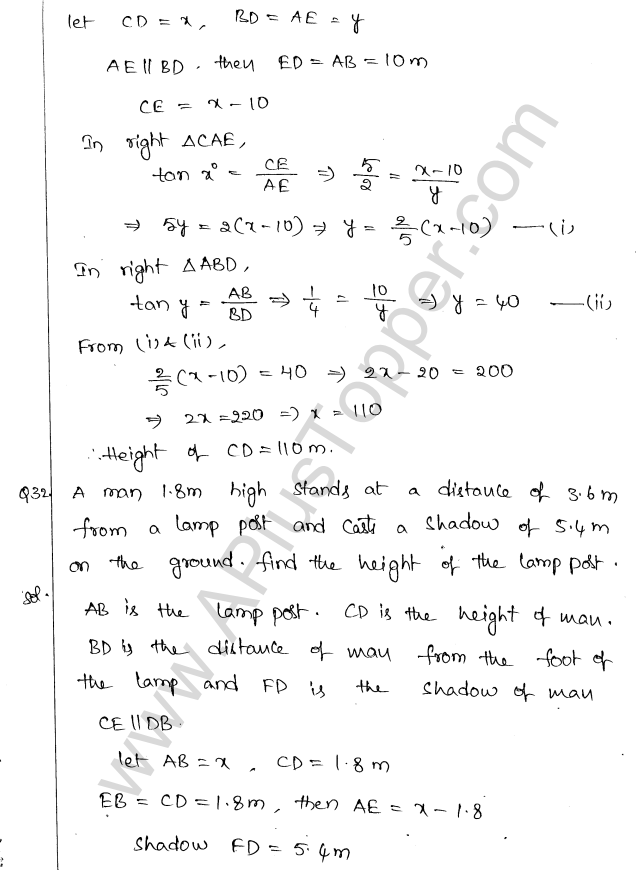 let CD = x, BD = AE = y
AE || BD. then ED = AB = 10m
CE = x - 10
In right ΔCAE,
tan x° = CE/AE ⇒ 5/2 = x-10/y
⇒ 5y = 2(x-10) ⇒ y = 2/5 (x-10) —(i)
In right ΔABD,
tan y = AB/BD ⇒ 1/4 = 10/y ⇒ y = 40 —(ii)
From (i) & (ii),
2/5 (x-10) = 40 ⇒ 2x - 20 = 200
⇒ 2x = 220 ⇒ x = 110
∴ Height of CD = 110 m.
Q32. A man 1.8m high stands at a distance of 3.6m
from a lamp post and casts a shadow of 5.4m
on the ground. find the height of the lamp post.
sol.
AB is the lamp post. CD is the height of man.
BD is the distance of man from the foot of
the lamp and FD is the shadow of man
CE || DB.
let AB = x, CD = 1.8 m
EB = CD = 1.8m, then AE = x - 1.8
Shadow FD = 5.4m
www.APlusTopper.com